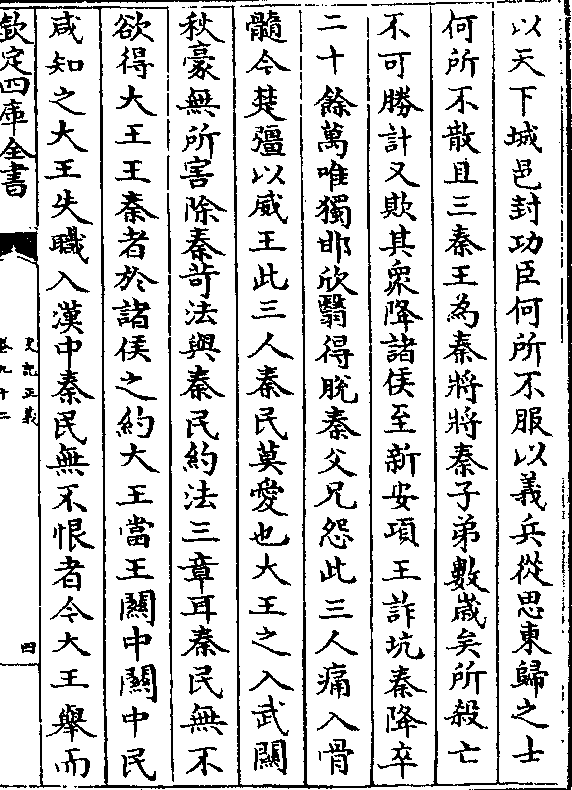 以天下城邑封功臣何所不服以義兵從思東歸之士
何所不散且三秦王為秦將將秦子弟數歲矣所殺亡
不可勝計又欺其衆降諸侯至新安項王詐坑秦降卒
二十餘萬唯獨邯欣翳得脫秦父兄怨此三人痛入骨
髓今楚彊以威王此三人秦民莫愛也大王之入武關
秋豪無所害除秦苛法與秦民約法三章耳秦民無不
欲得大王王秦者於諸侯之約大王當王關中關中民
咸知之大王失職入漢中秦民無不恨者今大王舉而
欽定四庫全書
史記正義
卷九十二
四